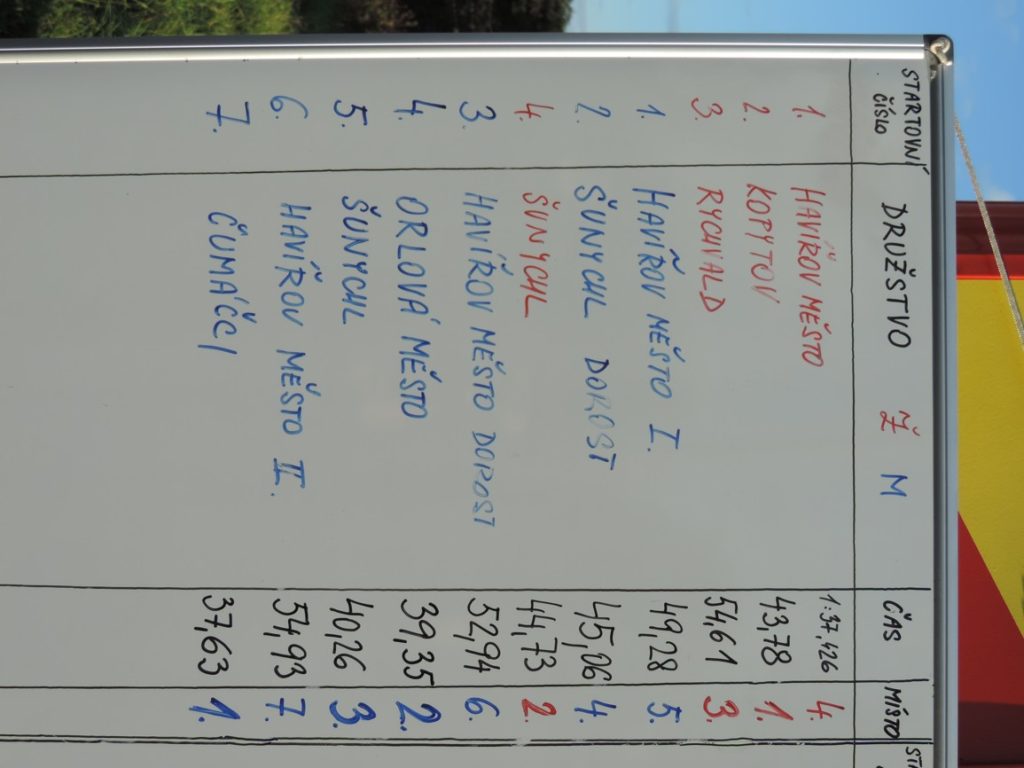 STARTOVNÍ ČÍSLO DRUŽSTVO Ž M ČAS MÍSTO
1. HAVÍŘOV MĚSTO 1:37,426 4.
2. KOPYTOV 43,78 1.
3. RYCHVALD 54,61 3.
1. HAVÍŘOV MĚSTO I. 49,28 5.
2. ŠUNYCHL DOROST 45,06 4.
4. ŠUNYCHL 44,73 2.
3. HAVÍŘOV MĚSTO DOROST 52,94 6.
4. ORLOVÁ MĚSTO 39,35 2.
5. ŠUNYCHL 40,26 3.
6. HAVÍŘOV MĚSTO II. 54,93 7.
7. ČUMÁČCI 37,63 1.